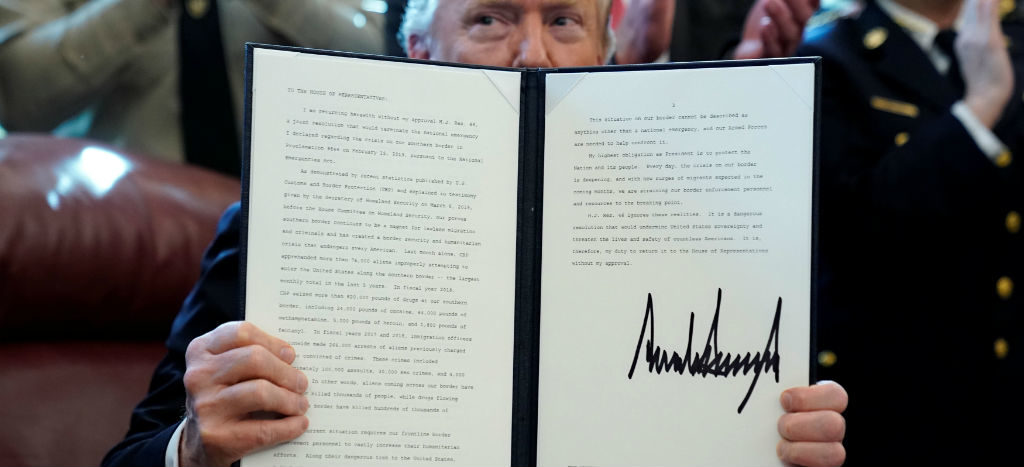 TO THE HOUSE OF REPRESENTATIVES:
I am returning herewith without my approval H.J. Res. 46,
a joint resolution that would terminate the national emergency
I declared regarding the crisis on our southern border in
Proclamation 9844 on February 15, 2019, pursuant to the National
Emergencies Act.
As demonstrated by recent statistics published by U.S.
Customs and Border Protection (CBP) and explained in testimony
given by the Secretary of Homeland Security on March 6, 2019,
before the House Committee on Homeland Security, our porous
southern border continues to be a magnet for lawless migration
and criminals and has created a border security and humanitarian
crisis that endangers every American. Last month alone, CBP
apprehended more than 76,000 aliens improperly attempting to
enter the United States along the southern border -- the largest
monthly total in the last 5 years. In fiscal year 2018,
CBP seized more than 820,000 pounds of drugs at our southern
border, including 24,000 pounds of cocaine, 64,000 pounds of
methamphetamine, 5,000 pounds of heroin, and 1,800 pounds of
fentanyl. In fiscal years 2017 and 2018, immigration officers
made 266,000 arrests of aliens previously charged
convicted of crimes. These crimes included
100,000 assaults, 30,000 sex crimes, and 4,000
In other words, aliens coming across our border have
killed thousands of people, while drugs flowing
border have killed hundreds of thousands of
current situation requires our frontline border
personnel to vastly increase their humanitarian
efforts. Along their dangerous trek to the United States,
2
This situation on our border cannot be described as
anything other than a national emergency, and our Armed Forces
are needed to help confront it.
My highest obligation as President is to protect the
Nation and its people. Every day, the crisis on our border
is deepening, and with new surges of migrants expected in the
coming months, we are straining our border enforcement personnel
and resources to the breaking point.
H.J. Res. 46 ignores these realities. It is a dangerous
resolution that would undermine United States sovereignty and
threaten the lives and safety of countless Americans. It is,
therefore, my duty to return it to the House of Representatives
without my approval.